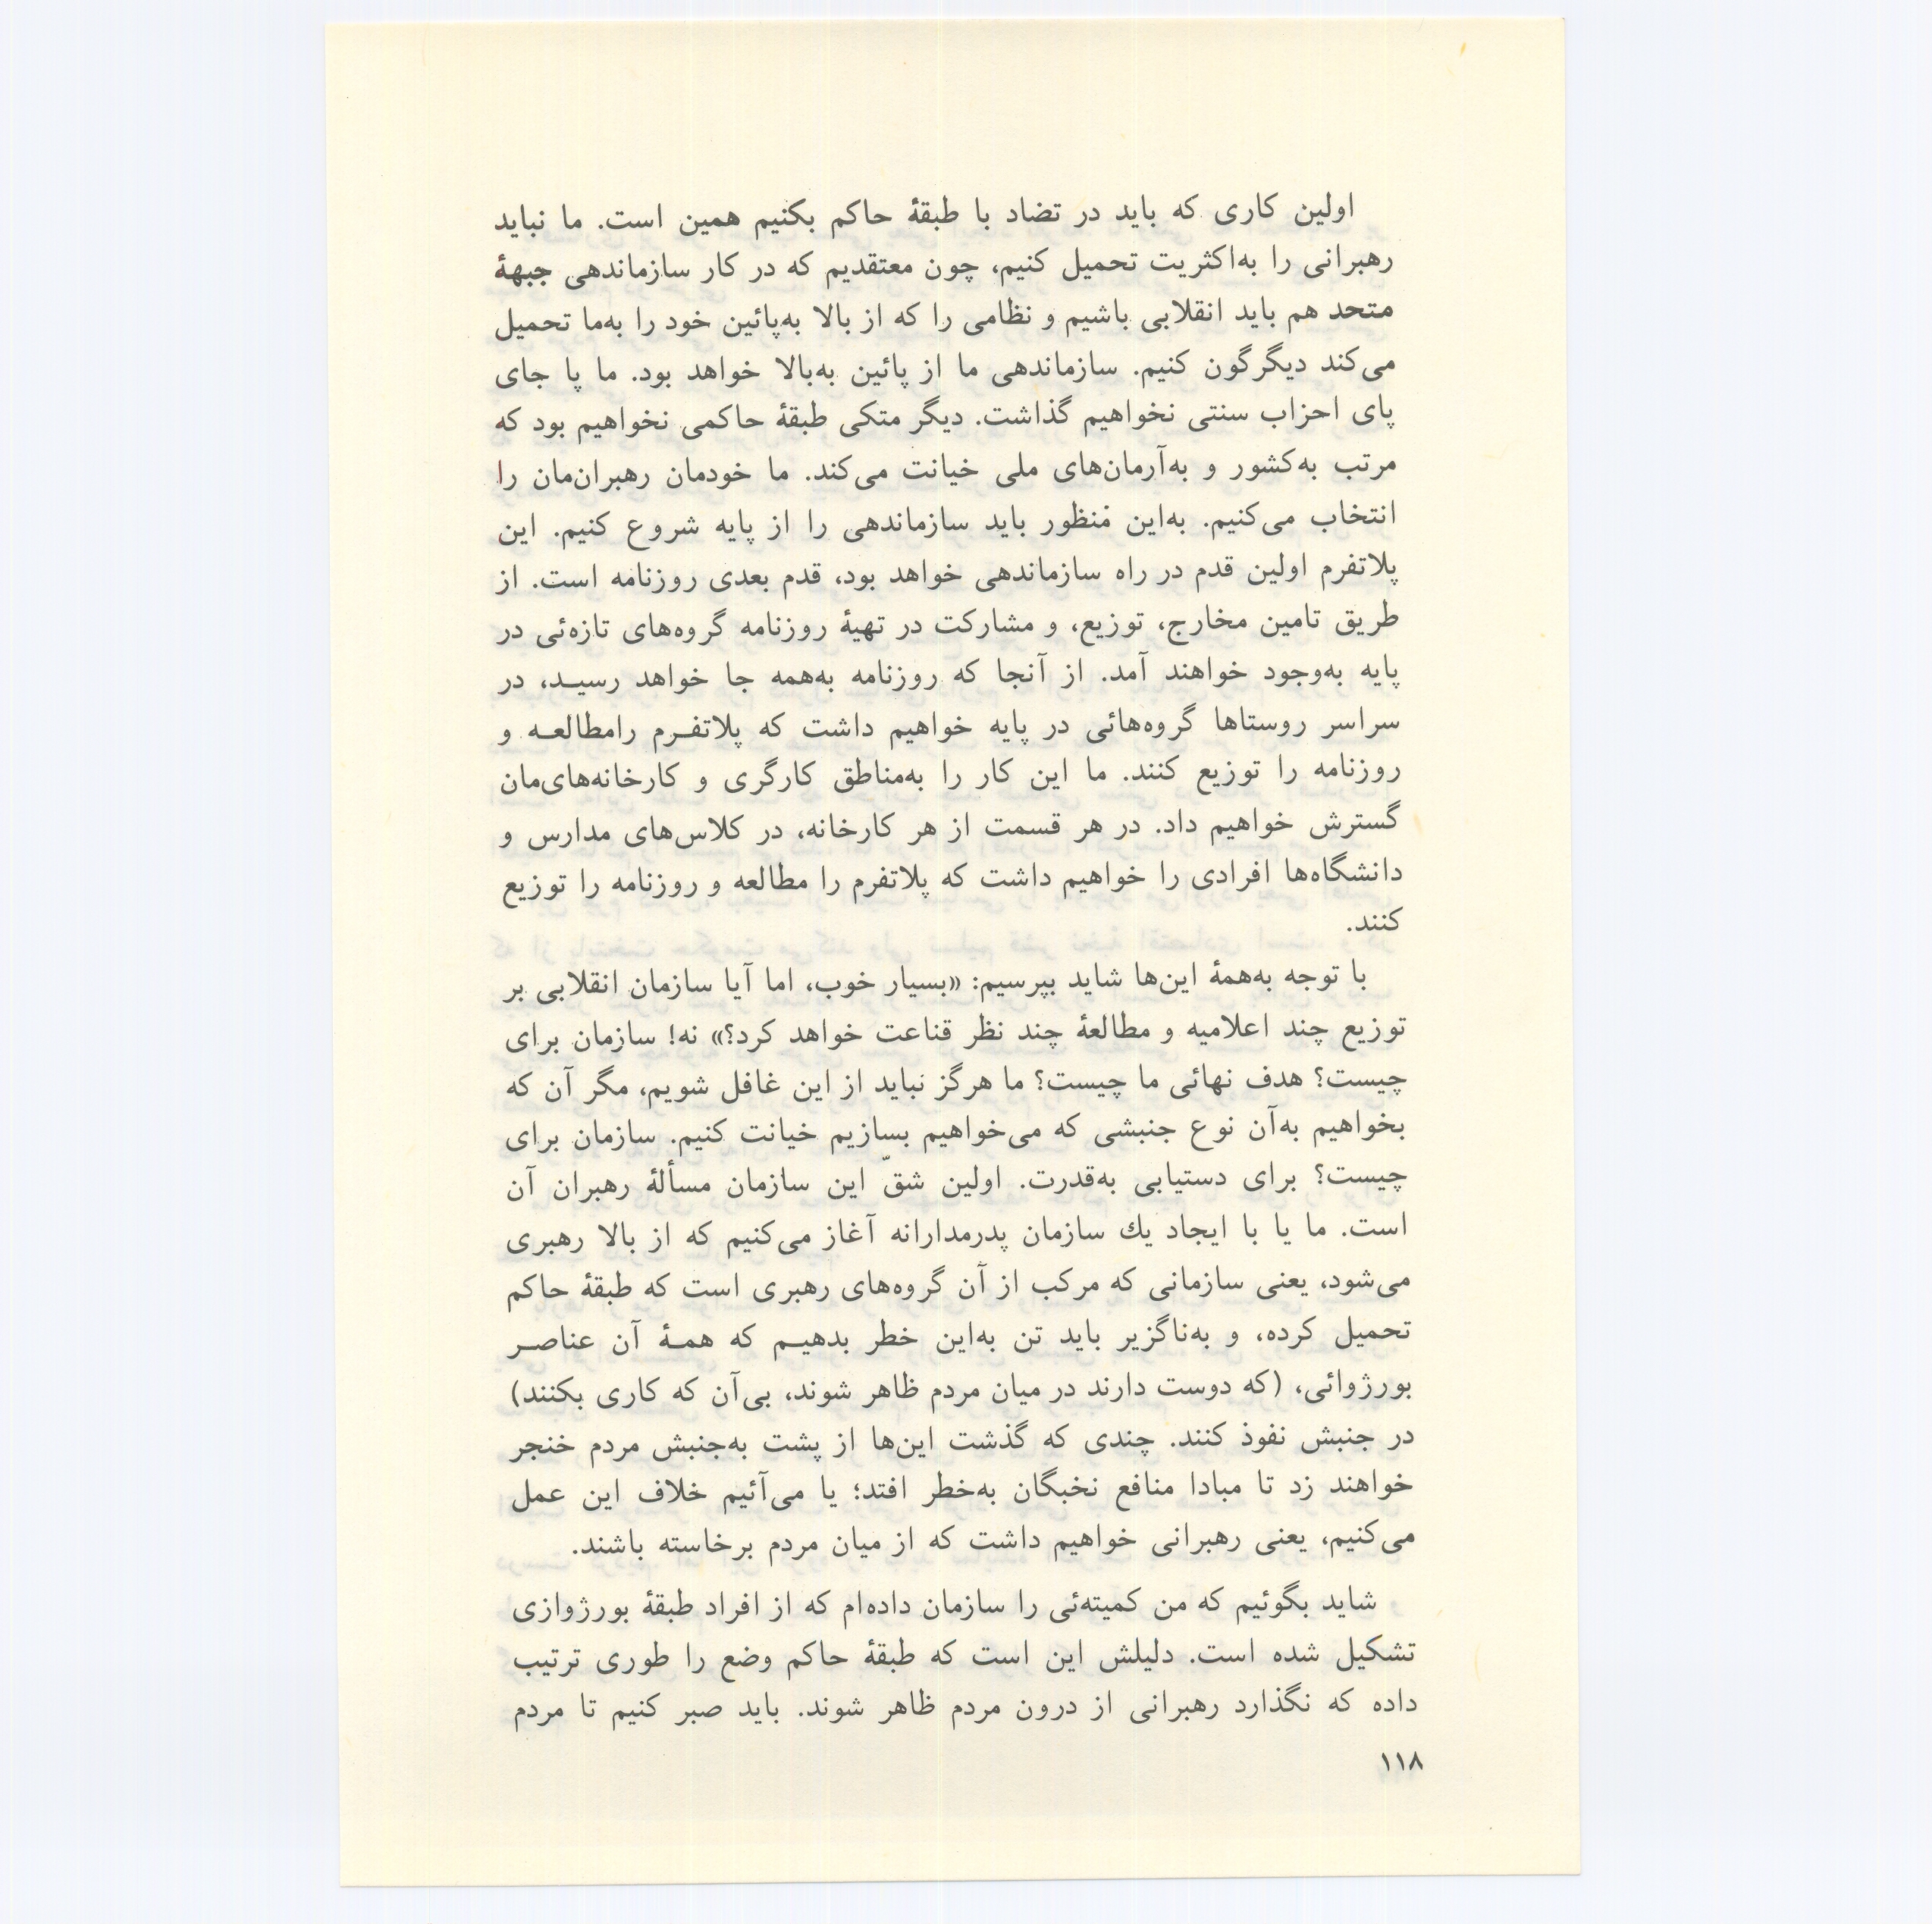 اولین کاری که باید در تضاد با طبقهٔ حاکم بکنیم همین است. ما نباید
رهبرانی را به‌اکثریت تحمیل کنیم، چون معتقدیم که در کار سازماندهی جبههٔ
متحد هم باید انقلابی باشیم و نظامی را که از بالا به‌پائین خود را به‌ما تحمیل
می‌کند دیگرگون کنیم. سازماندهی ما از پائین به‌بالا خواهد بود. ما پا جای
پای احزاب سنتی نخواهیم گذاشت. دیگر متکی طبقهٔ حاکمی نخواهیم بود که
مرتب به‌کشور و به‌آرمان‌های ملی خیانت می‌کند. ما خودمان رهبران‌مان را
انتخاب می‌کنیم. به‌این منظور باید سازماندهی را از پایه شروع کنیم. این
پلاتفرم اولین قدم در راه سازماندهی خواهد بود، قدم بعدی روزنامه است. از
طریق تامین مخارج، توزیع، و مشارکت در تهیهٔ روزنامه گروه‌های تازه‌ئی در
پایه به‌وجود خواهند آمد. از آنجا که روزنامه به‌همه جا خواهد رسیـد، در
سراسر روستاها گروه‌هائی در پایه خواهیم داشت که پلاتفـرم رامطالعـه و
روزنامه را توزیع کنند. ما این کار را به‌مناطق کارگری و کارخانه‌های‌مان
گسترش خواهیم داد. در هر قسمت از هر کارخانه، در کلاس‌های مدارس و
دانشگاه‌ها افرادی را خواهیم داشت که پلاتفرم را مطالعه و روزنامه را توزیع
کنند.
با توجه به‌همهٔ این‌ها شاید بپرسیم: «بسیار خوب، اما آیا سازمان انقلابی بر
توزیع چند اعلامیه و مطالعهٔ چند نظر قناعت خواهد کرد؟» نه! سازمان برای
چیست؟ هدف نهائی ما چیست؟ ما هرگز نباید از این غافل شویم، مگر آن که
بخواهیم به‌آن نوع جنبشی که می‌خواهیم بسازیم خیانت کنیم. سازمان برای
چیست؟ برای دستیابی به‌قدرت. اولین شقّ این سازمان مسألهٔ رهبران آن
است. ما یا با ایجاد یك سازمان پدرمدارانه آغاز می‌کنیم که از بالا رهبری
می‌شود، یعنی سازمانی که مرکب از آن گروه‌های رهبری است که طبقهٔ حاکم
تحمیل کرده، و به‌ناگزیر باید تن به‌این خطر بدهیـم که همـهٔ آن عناصـر
بورژوائی، (که دوست دارند در میان مردم ظاهر شوند، بی‌آن که کاری بکنند)
در جنبش نفوذ کنند. چندی که گذشت این‌ها از پشت به‌جنبش مردم خنجر
خواهند زد تا مبادا منافع نخبگان به‌خطر افتد؛ یا می‌آئیم خلاف این عمل
می‌کنیم، یعنی رهبرانی خواهیم داشت که از میان مردم برخاسته باشند.
شاید بگوئیم که من کمیته‌ئی را سازمان داده‌ام که از افراد طبقهٔ بورژوازی
تشکیل شده است. دلیلش این است که طبقهٔ حاکم وضع را طوری ترتیب
داده که نگذارد رهبرانی از درون مردم ظاهر شوند. باید صبر کنیم تا مردم
۱۱۸